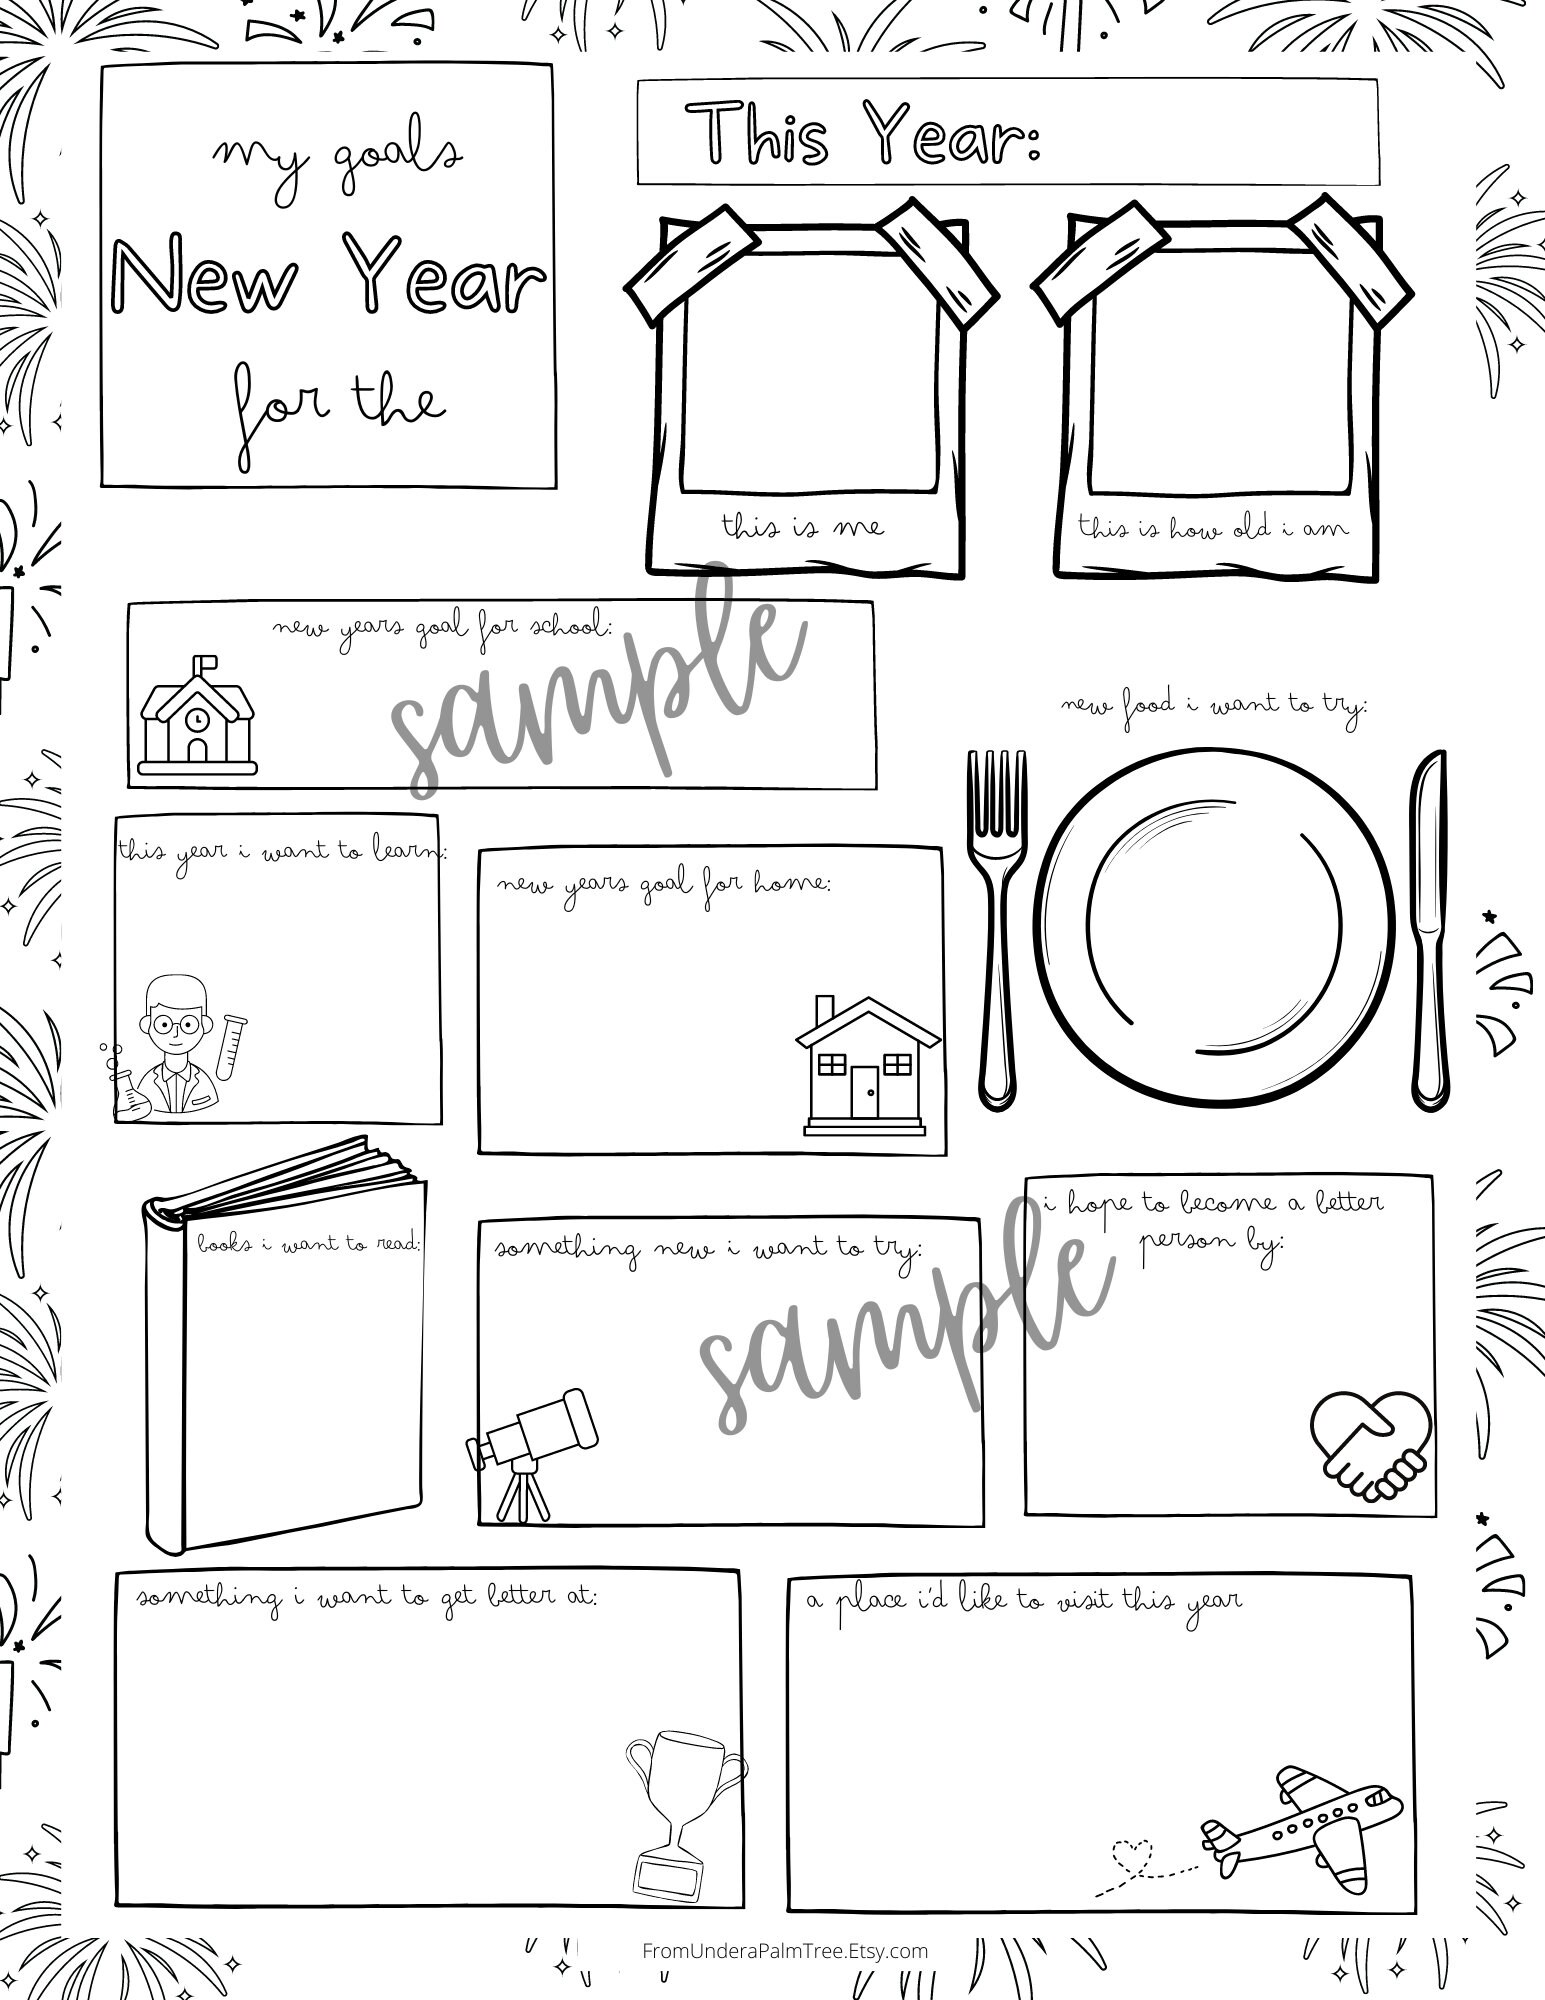 my goals
New Year
for the
This Year:
this is me
this is how old i am
new years goal for school:
sample
new food i want to try:
this year i want to learn:
new years goal for home:
books i want to read:
something new i want to try:
i hope to become a better
person by:
sample
something i want to get better at:
a place i'd like to visit this year
FromUnderaPalmTree.Etsy.com